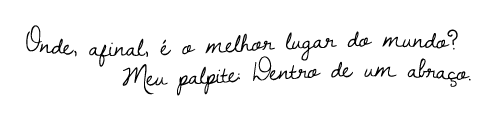 Onde, afinal, é o melhor lugar do mundo?
Meu palpite: Dentro de um abraço.